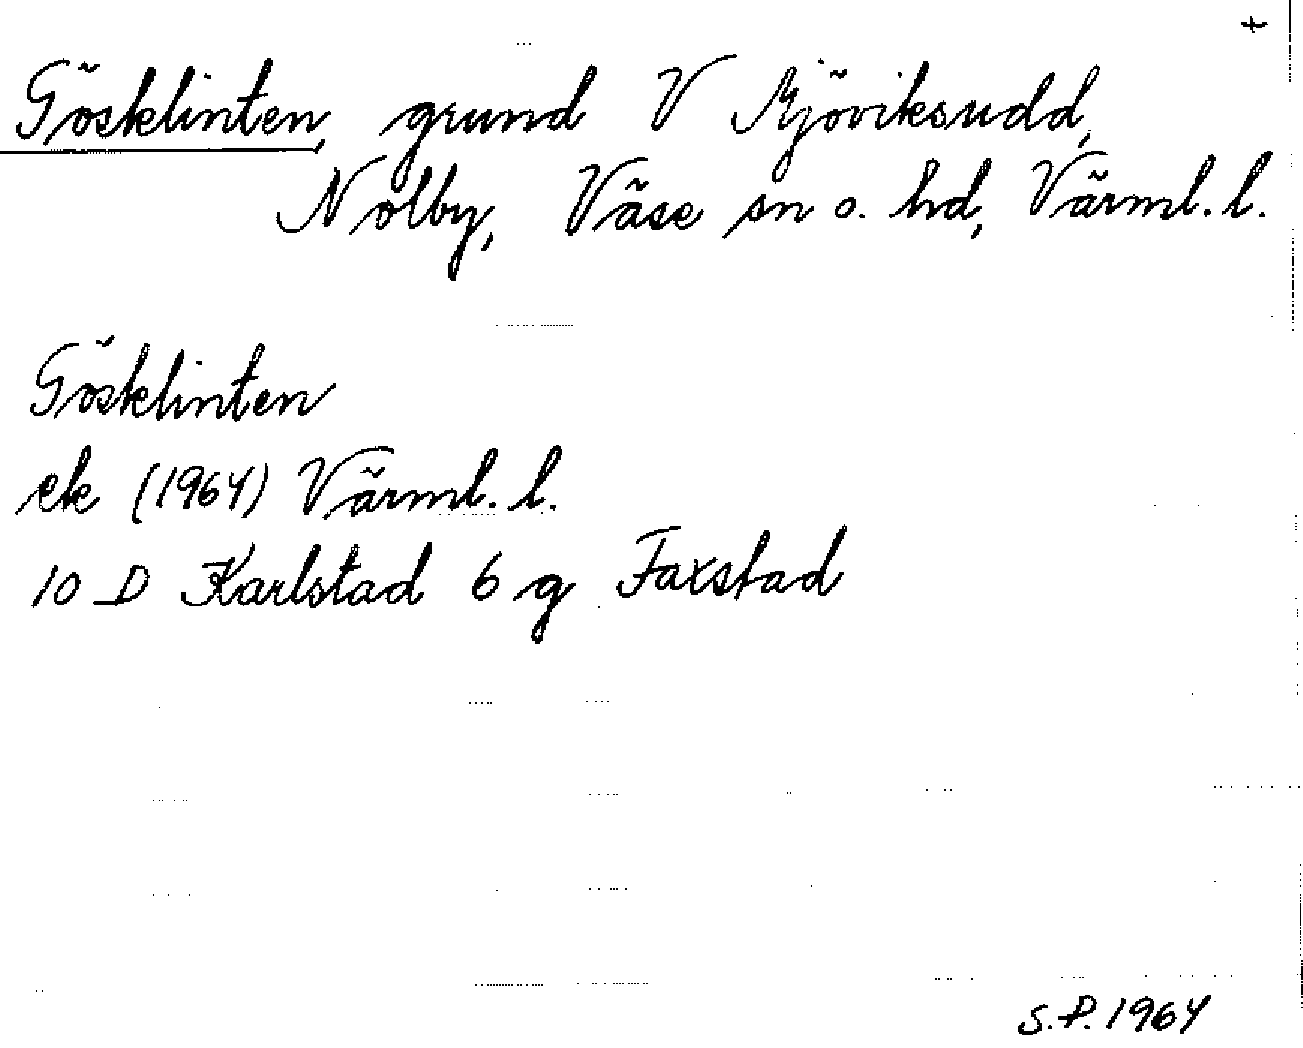 t
Gösklinten, grund V Mjöviksudd,
Nolby, Väse sn o. hd, Värml. l.
Gösklinten
ek (1964) Värml. l.
10 D Karlstad 6 g Faxstad
S.P. 1964